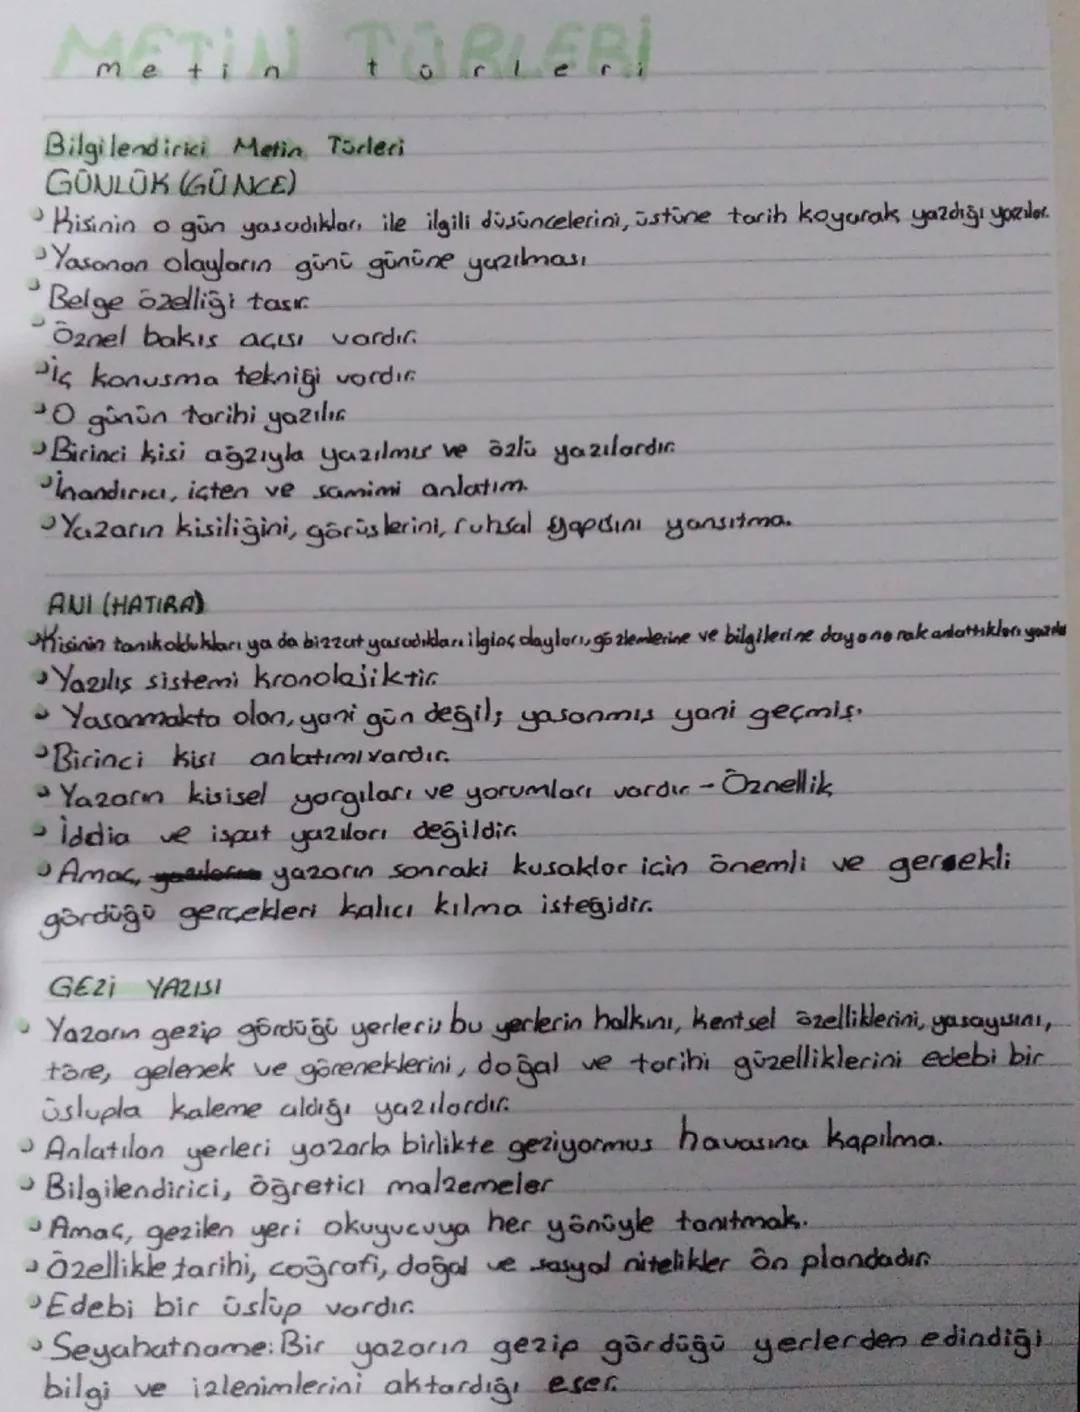 METİN TÜRLERİ
metin türleri
Bilgilendirici Metin Türleri
GÜNLÜK (GÜNCE)
Kisinin o gün yasadıkları ile ilgili düsüncelerini, üstüne tarih koyarak yazdığı yazılar.
Yasanan olayların günü gününe yazılması
Belge özelliği tasır.
Öznel bakıs açısı vardır.
İç konusma tekniği vardır.
O günün tarihi yazılır.
Birinci kisi ağzıyla yazılmıs ve özlü yazılardır.
İnandırıcı, içten ve samimi anlatım.
Yazarın kisiliğini, görüslerini, ruhsal yapısını yansıtma.
ANI (HATIRA)
Kisinin tanık oldukları ya da bizzat yasadıkları ilginç olayları, gözlemlerine ve bilgilerine dayanarak anlattıkları yazıdır
Yazılıs sistemi kronolojiktir.
Yasanmakta olan, yani gün değil; yasanmıs yani geçmis.
Birinci kisi anlatımı vardır.
Yazarın kisisel yargıları ve yorumları vardır - Öznellik
İddia ve ispat yazıları değildir.
Amaç, yazarın sonraki kusaklar için önemli ve gerekli
gördüğü gerçekleri kalıcı kılma isteğidir.
GEZİ YAZISI
Yazarın gezip gördüğü yerleri; bu yerlerin halkını, kentsel özelliklerini, yasayısını,
töre, gelenek ve göreneklerini, doğal ve tarihi güzelliklerini edebi bir
üslupla kaleme aldığı yazılardır.
Anlatılan yerleri yazarla birlikte geziyormus havasına kapılma.
Bilgilendirici, öğretici malzemeler
Amaç, gezilen yeri okuyucuya her yönüyle tanıtmak.
Özellikle tarihi, coğrafi, doğal ve sosyal nitelikler ön plandadır.
Edebi bir üslup vardır.
Seyahatname: Bir yazarın gezip gördüğü yerlerden edindiği
bilgi ve izlenimlerini aktardığı eser.